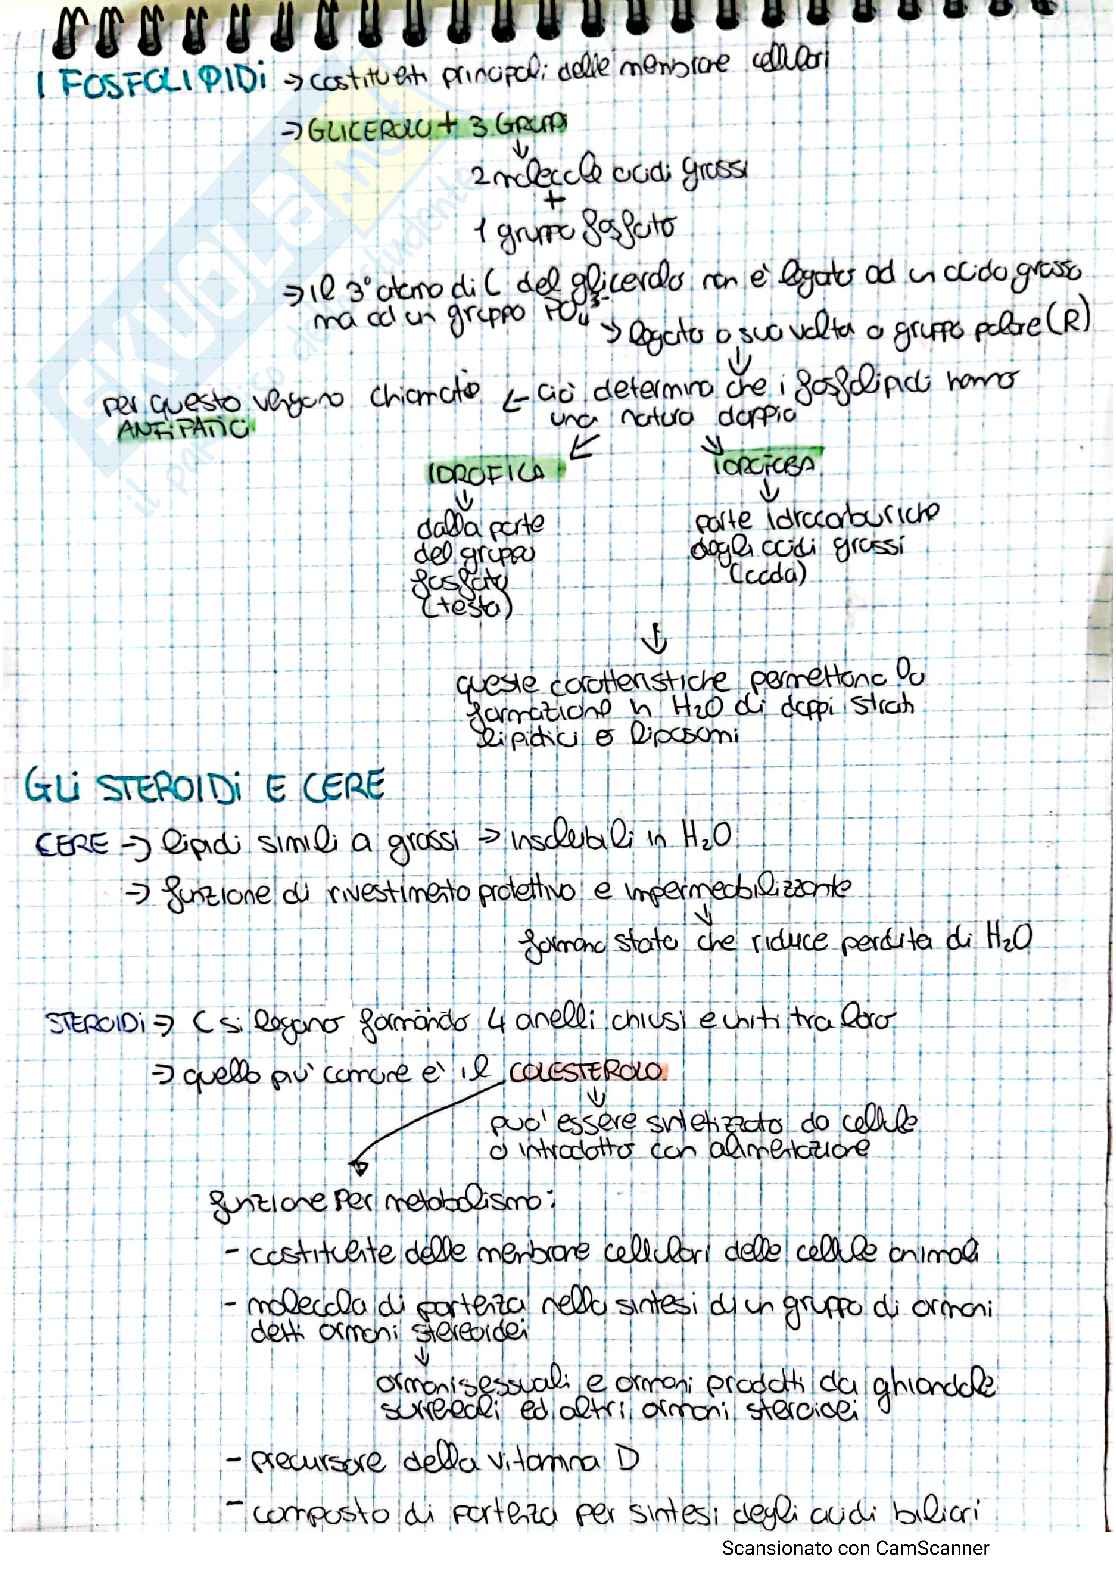 I FOSFOLIPIDI → costituenti principali delle membrane cellulari
→ GLICEROLO + 3 GRUPPI
↓
2 molecole acidi grassi
+
1 gruppo fosfato
→ il 3° atomo di C del glicerolo non è legato ad un acido grasso
ma ad un gruppo PO₄³⁻ → legato a sua volta a gruppo polare (R)
↓
per questo vengono chiamati ← ciò determina che i fosfolipidi hanno
ANTIPATICI una natura doppia
↙ ↘
IDROFILA IDROFOBA
↓ ↓
dalla parte parte idrocarburiche
del gruppo degli acidi grassi
fosfato (coda)
(testa)
↓
queste caratteristiche permettono la
formazione in H₂O di doppi strati
lipidici e liposomi
GLI STEROIDI E CERE
CERE → lipidi simili a grassi → insolubili in H₂O
→ funzione di rivestimento protettivo e impermeabilizzante
↓
formano stato che riduce perdita di H₂O
STEROIDI → C si legano formando 4 anelli chiusi e uniti tra loro
→ quello più comune è il COLESTEROLO
↓
puo' essere sintetizzato da cellule
o introdotto con alimentazione
funzione per metabolismo:
- costituente delle membrane cellulari delle cellule animali
- molecola di partenza nella sintesi di un gruppo di ormoni
detti ormoni stereoidei
↓
ormoni sessuali e ormoni prodotti da ghiandole
surreali ed altri ormoni steroidei
- precursore della vitamina D
- composto di partenza per sintesi degli acidi biliari
SKUOLA.net
Scansionato con CamScanner